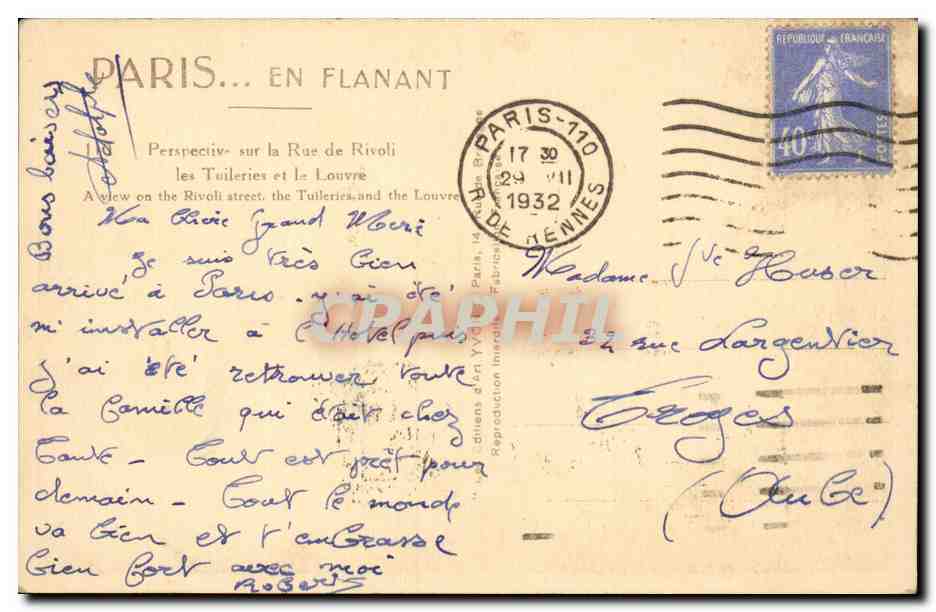 PARIS... EN FLANANT
Perspective sur la Rue de Rivoli
les Tuileries et le Louvre
A view on the Rivoli street, the Tuileries and the Louvre
Bons baisers
Adolphe
REPUBLIQUE FRANCAISE
POSTES
40
PARIS-110
17 30
29 VII
1932
R. DE RENNES
Ma chère grand Mère
Je suis très bien
arrivé à Paris. j'ai été
m'installer à l'Hotel puis
j'ai été retrouver toute
la famille qui était chez
Tante - Tout est prêt pour
demain - Tout le monde
va bien et t'embrasse
bien fort avec moi
Robert
Editions d'Art YVON, Paris, 14, Rue de
Reproduction Interdite Fabrication Française
Madame Vve Huser
32 rue Largentier
Troyes
(Aube)
CPAPHIL